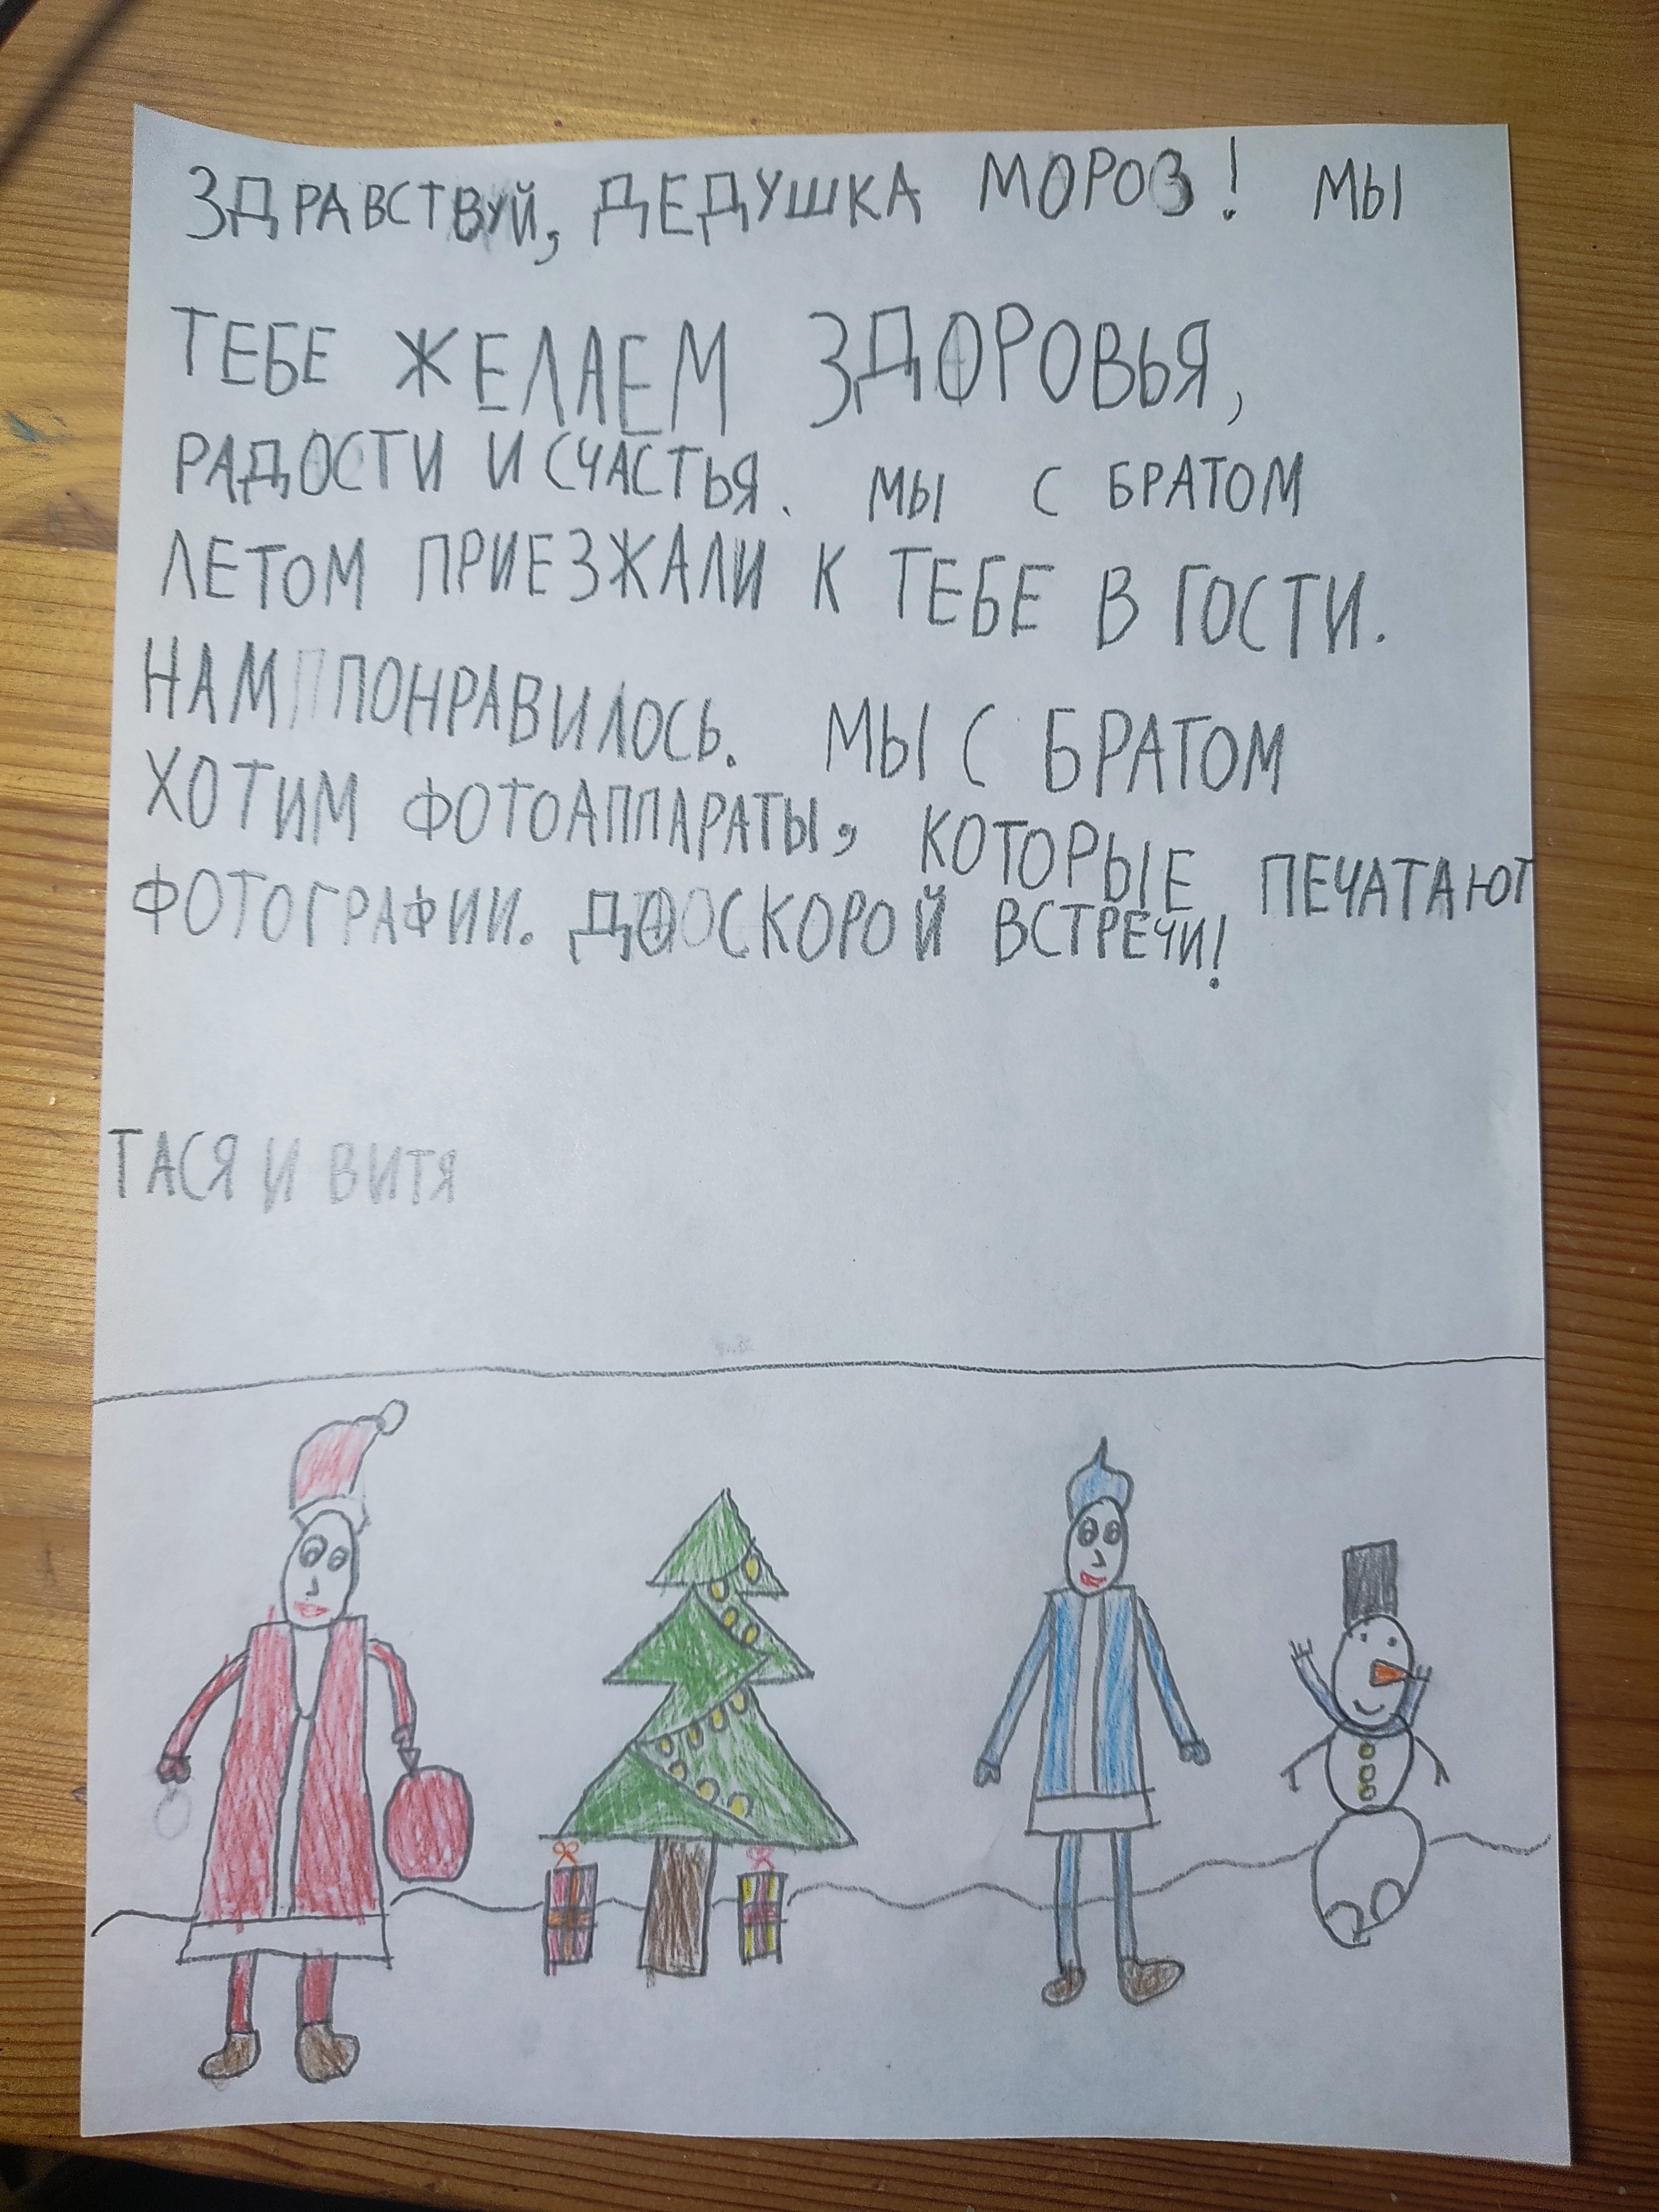 ЗДРАВСТВУЙ, ДЕДУШКА МОРОЗ! МЫ
ТЕБЕ ЖЕЛАЕМ ЗДОРОВЬЯ,
РАДОСТИ И СЧАСТЬЯ. МЫ С БРАТОМ
ЛЕТОМ ПРИЕЗЖАЛИ К ТЕБЕ В ГОСТИ.
НАМ ПОНРАВИЛОСЬ. МЫ С БРАТОМ
ХОТИМ ФОТОАППАРАТЫ, КОТОРЫЕ ПЕЧАТАЮТ
ФОТОГРАФИИ. ДО СКОРОЙ ВСТРЕЧИ!
ТАСЯ И ВИТЯ